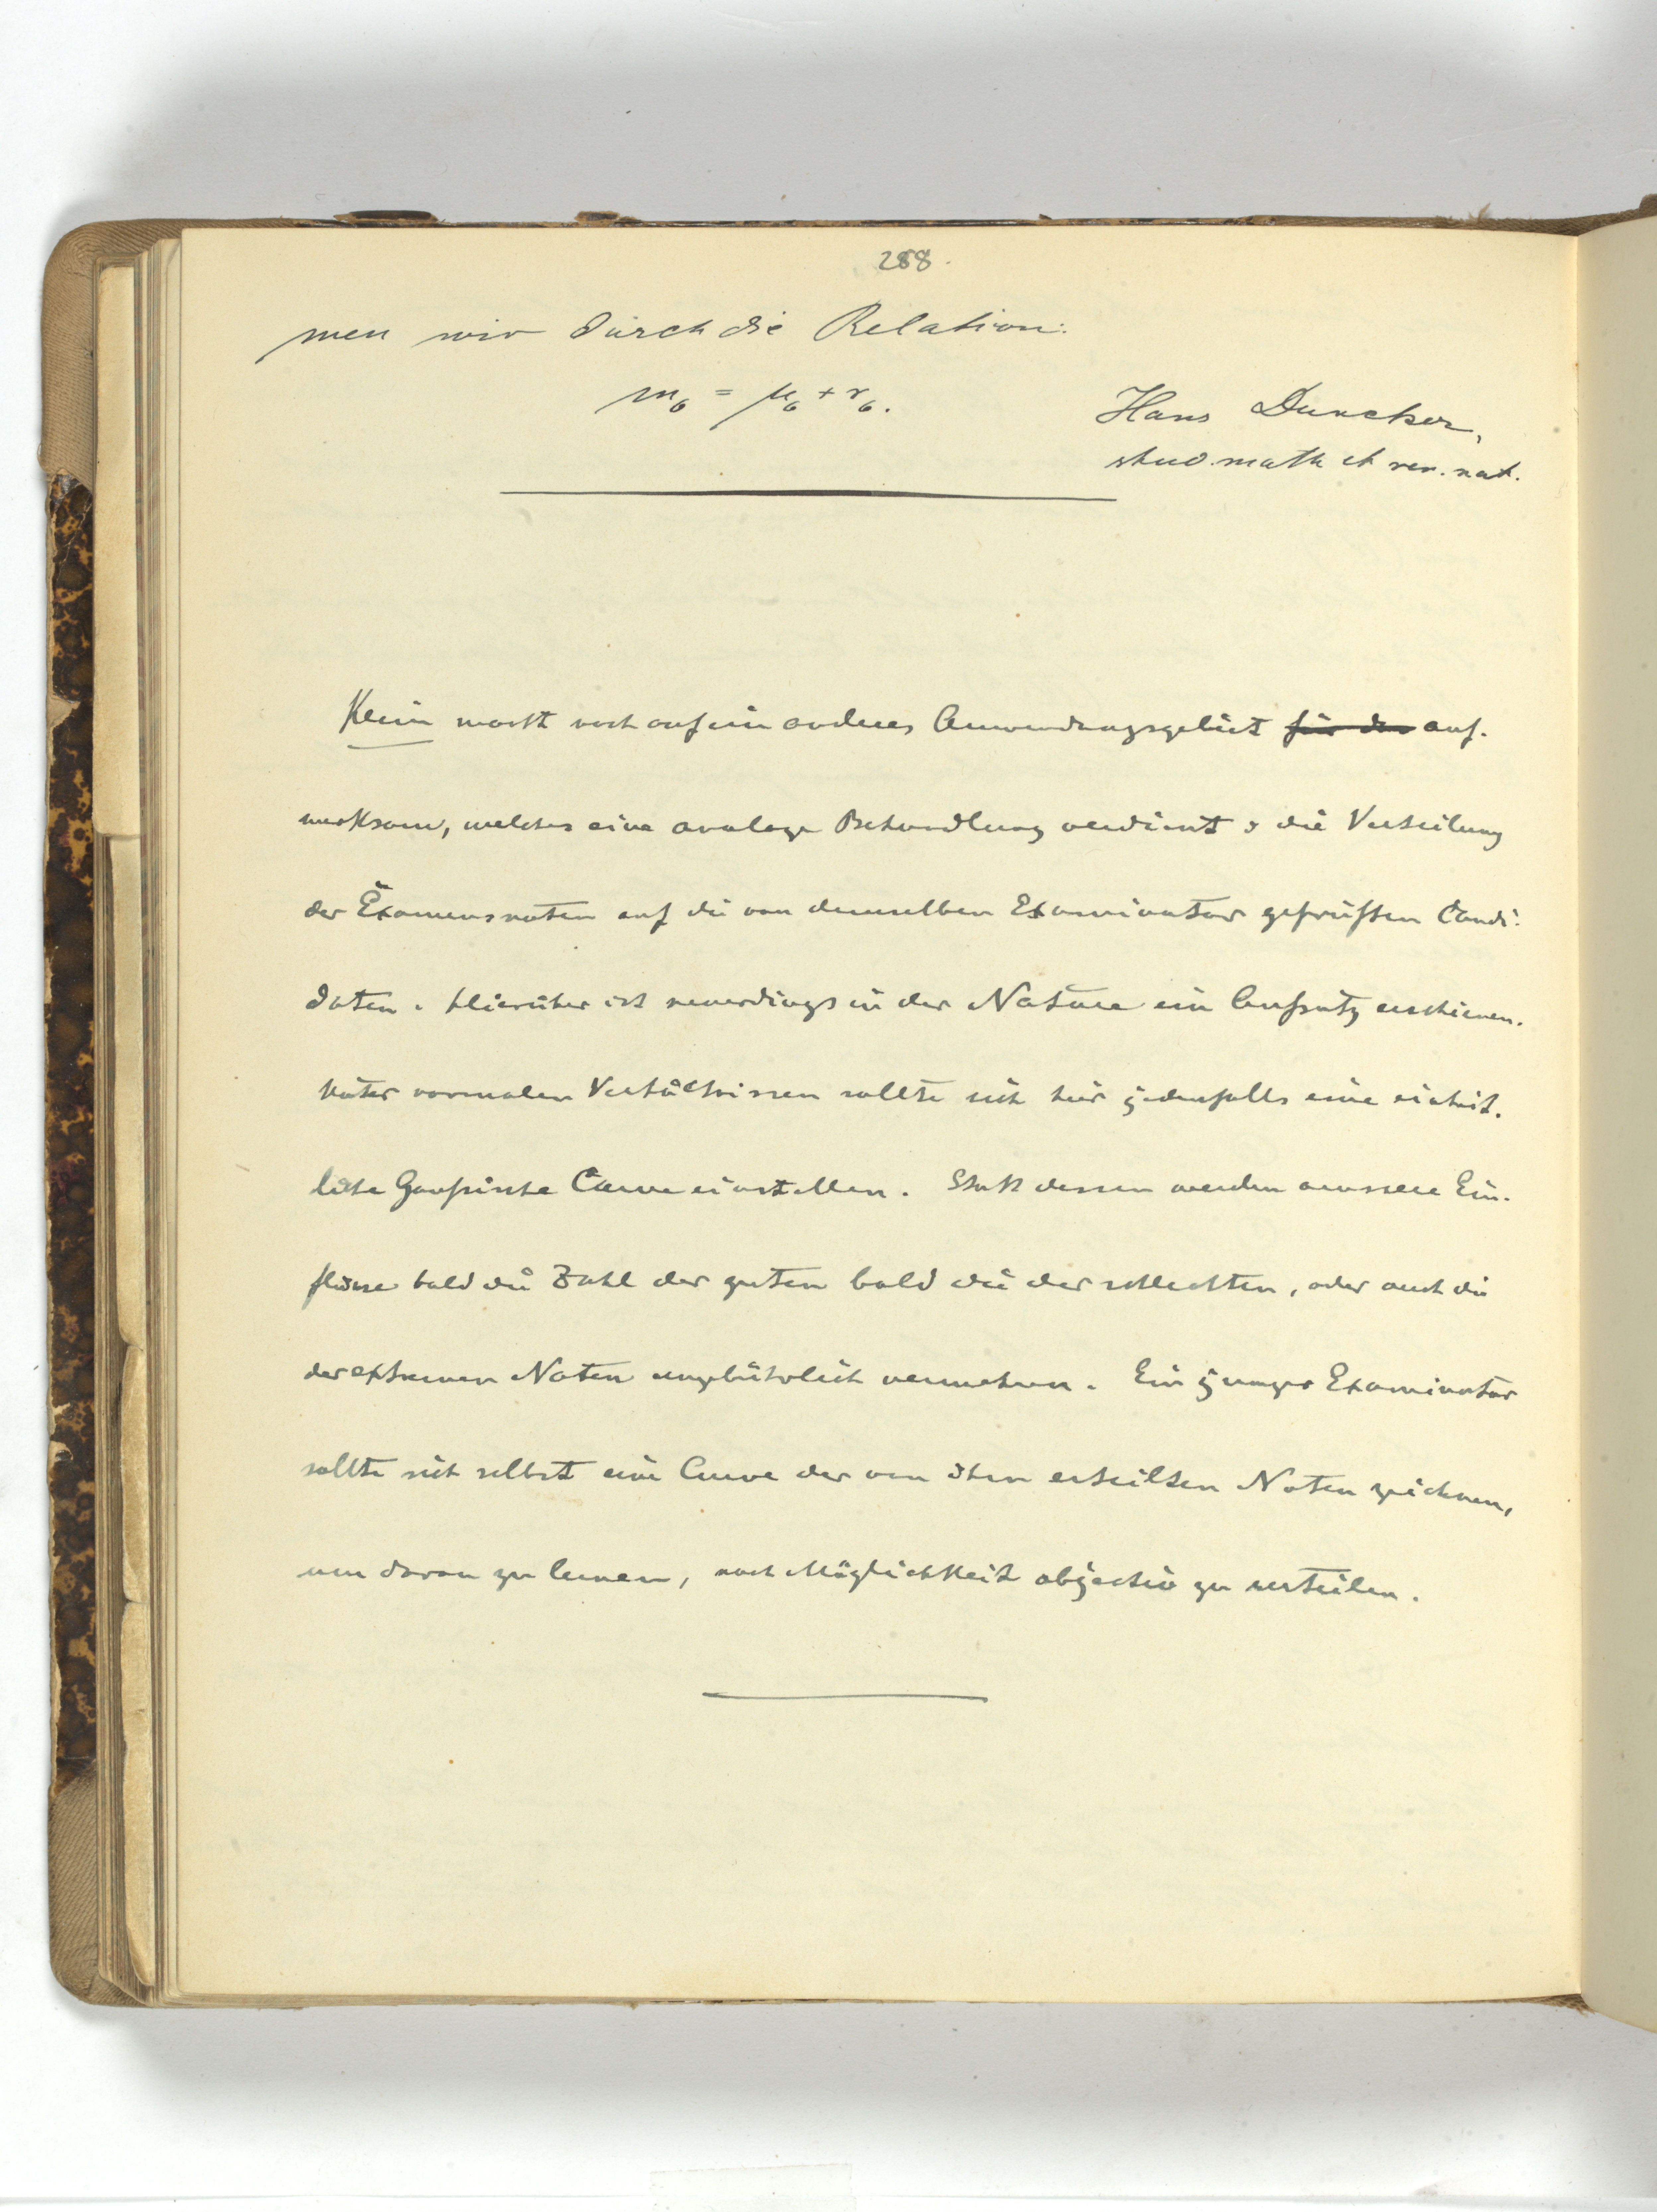 288.
men wir durch die Relation:
m₆ = μ₆ + r₆.
Hans Duncker,
stud. math et rer. nat.
Klein macht noch auf ein anderes Anwendungsgebiet für das auf-
merksam, welches eine analoge Behandlung verdient: die Verteilung
der Examensnoten auf die von demselben Examinator geprüften Candi-
daten. Hierüber ist neuerdings in der Nature ein Aufsatz erschienen.
Unter normalen Verhältnissen sollte sich hier jedenfalls eine einheit-
liche Gaußische Curve einstellen. Statt dessen werden aeussere Ein-
flüsse bald die Zahl der guten bald die der schlechten, oder auch die
der extremen Noten ungebührlich vermehren. Ein junger Examinator
sollte sich selbst eine Curve der von ihm erteilten Noten zeichnen,
um daran zu lernen, nach Möglichkeit objectiv zu urteilen.